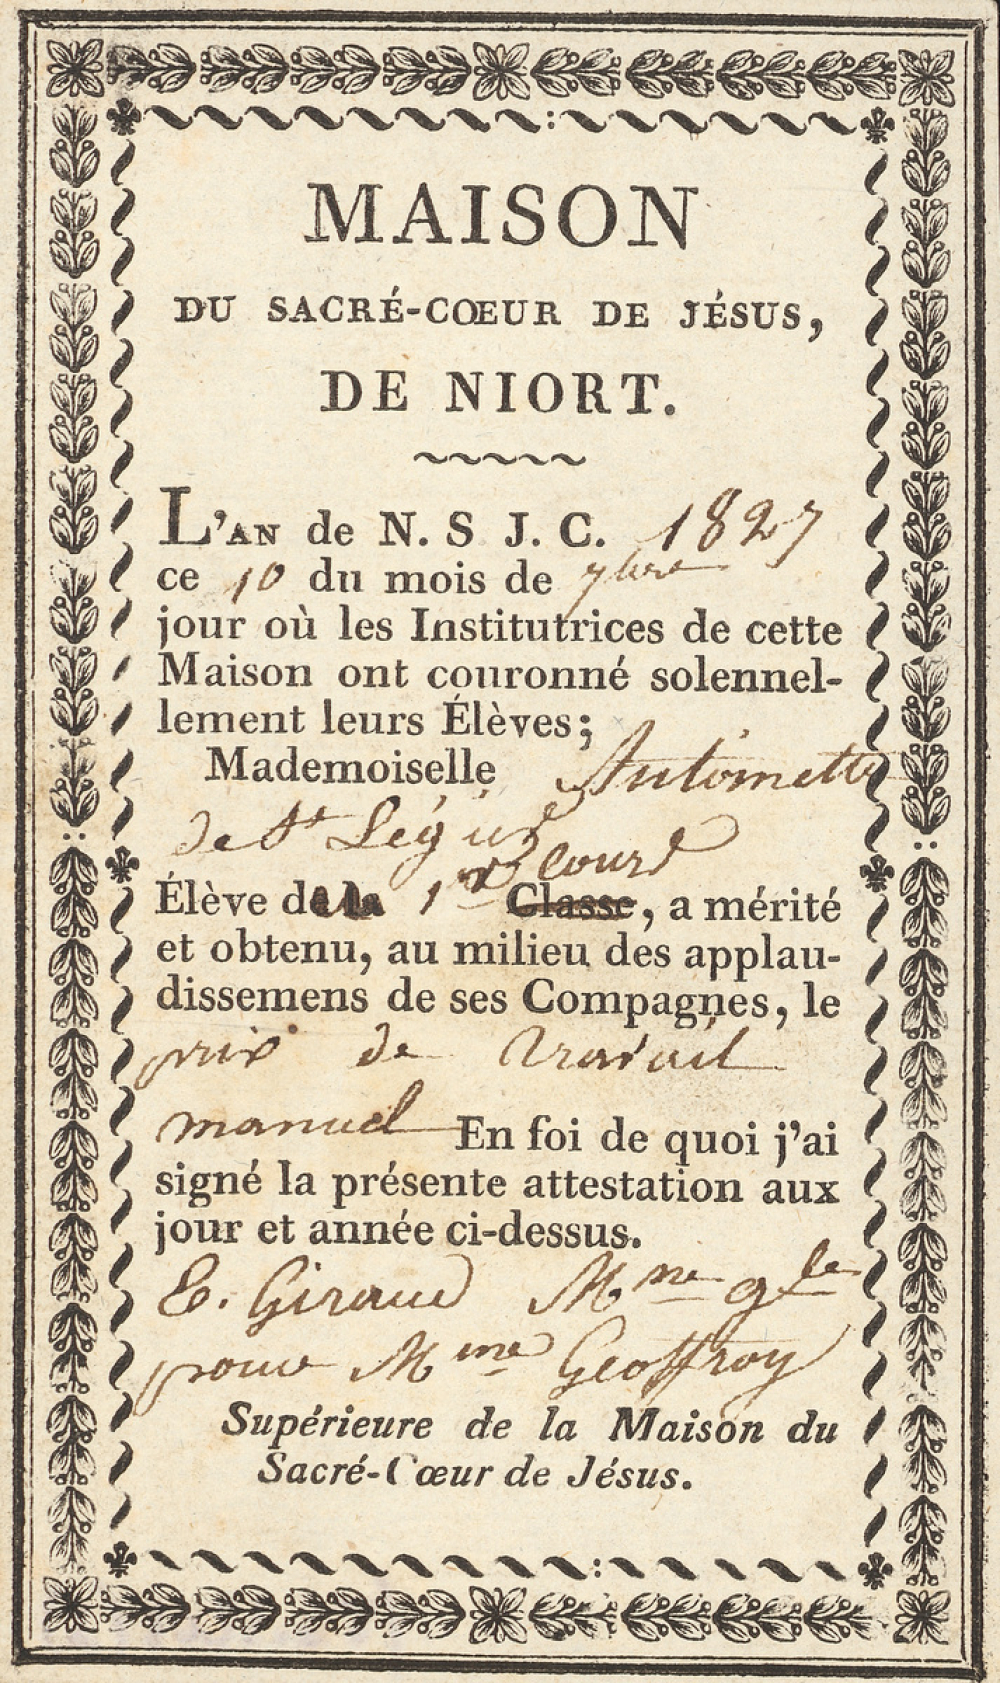 MAISON
DU SACRÉ-CŒUR DE JÉSUS,
DE NIORT.
L'AN de N. S J. C. 1827
ce 10 du mois de 7bre
jour où les Institutrices de cette
Maison ont couronné solennel-
lement leurs Élèves;
Mademoiselle Antoinette
de St Légier
Élève de la 1er Cours Classe, a mérité
et obtenu, au milieu des applau-
dissemens de ses Compagnes, le
prix de travail
manuel En foi de quoi j'ai
signé la présente attestation aux
jour et année ci-dessus.
E. Giraud Mme gle
pour Mme Geoffroy
Supérieure de la Maison du
Sacré-Cœur de Jésus.